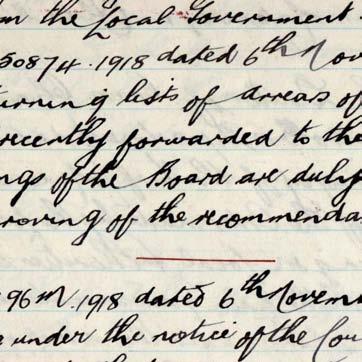 m the Local Government
50874.1918 dated 6th Nov
urning lists of arrears of
recently forwarded to the
ngs of the Board are duly
roving of the recommenda
96M.1918 dated 6th Novem
under the notice of the Cou